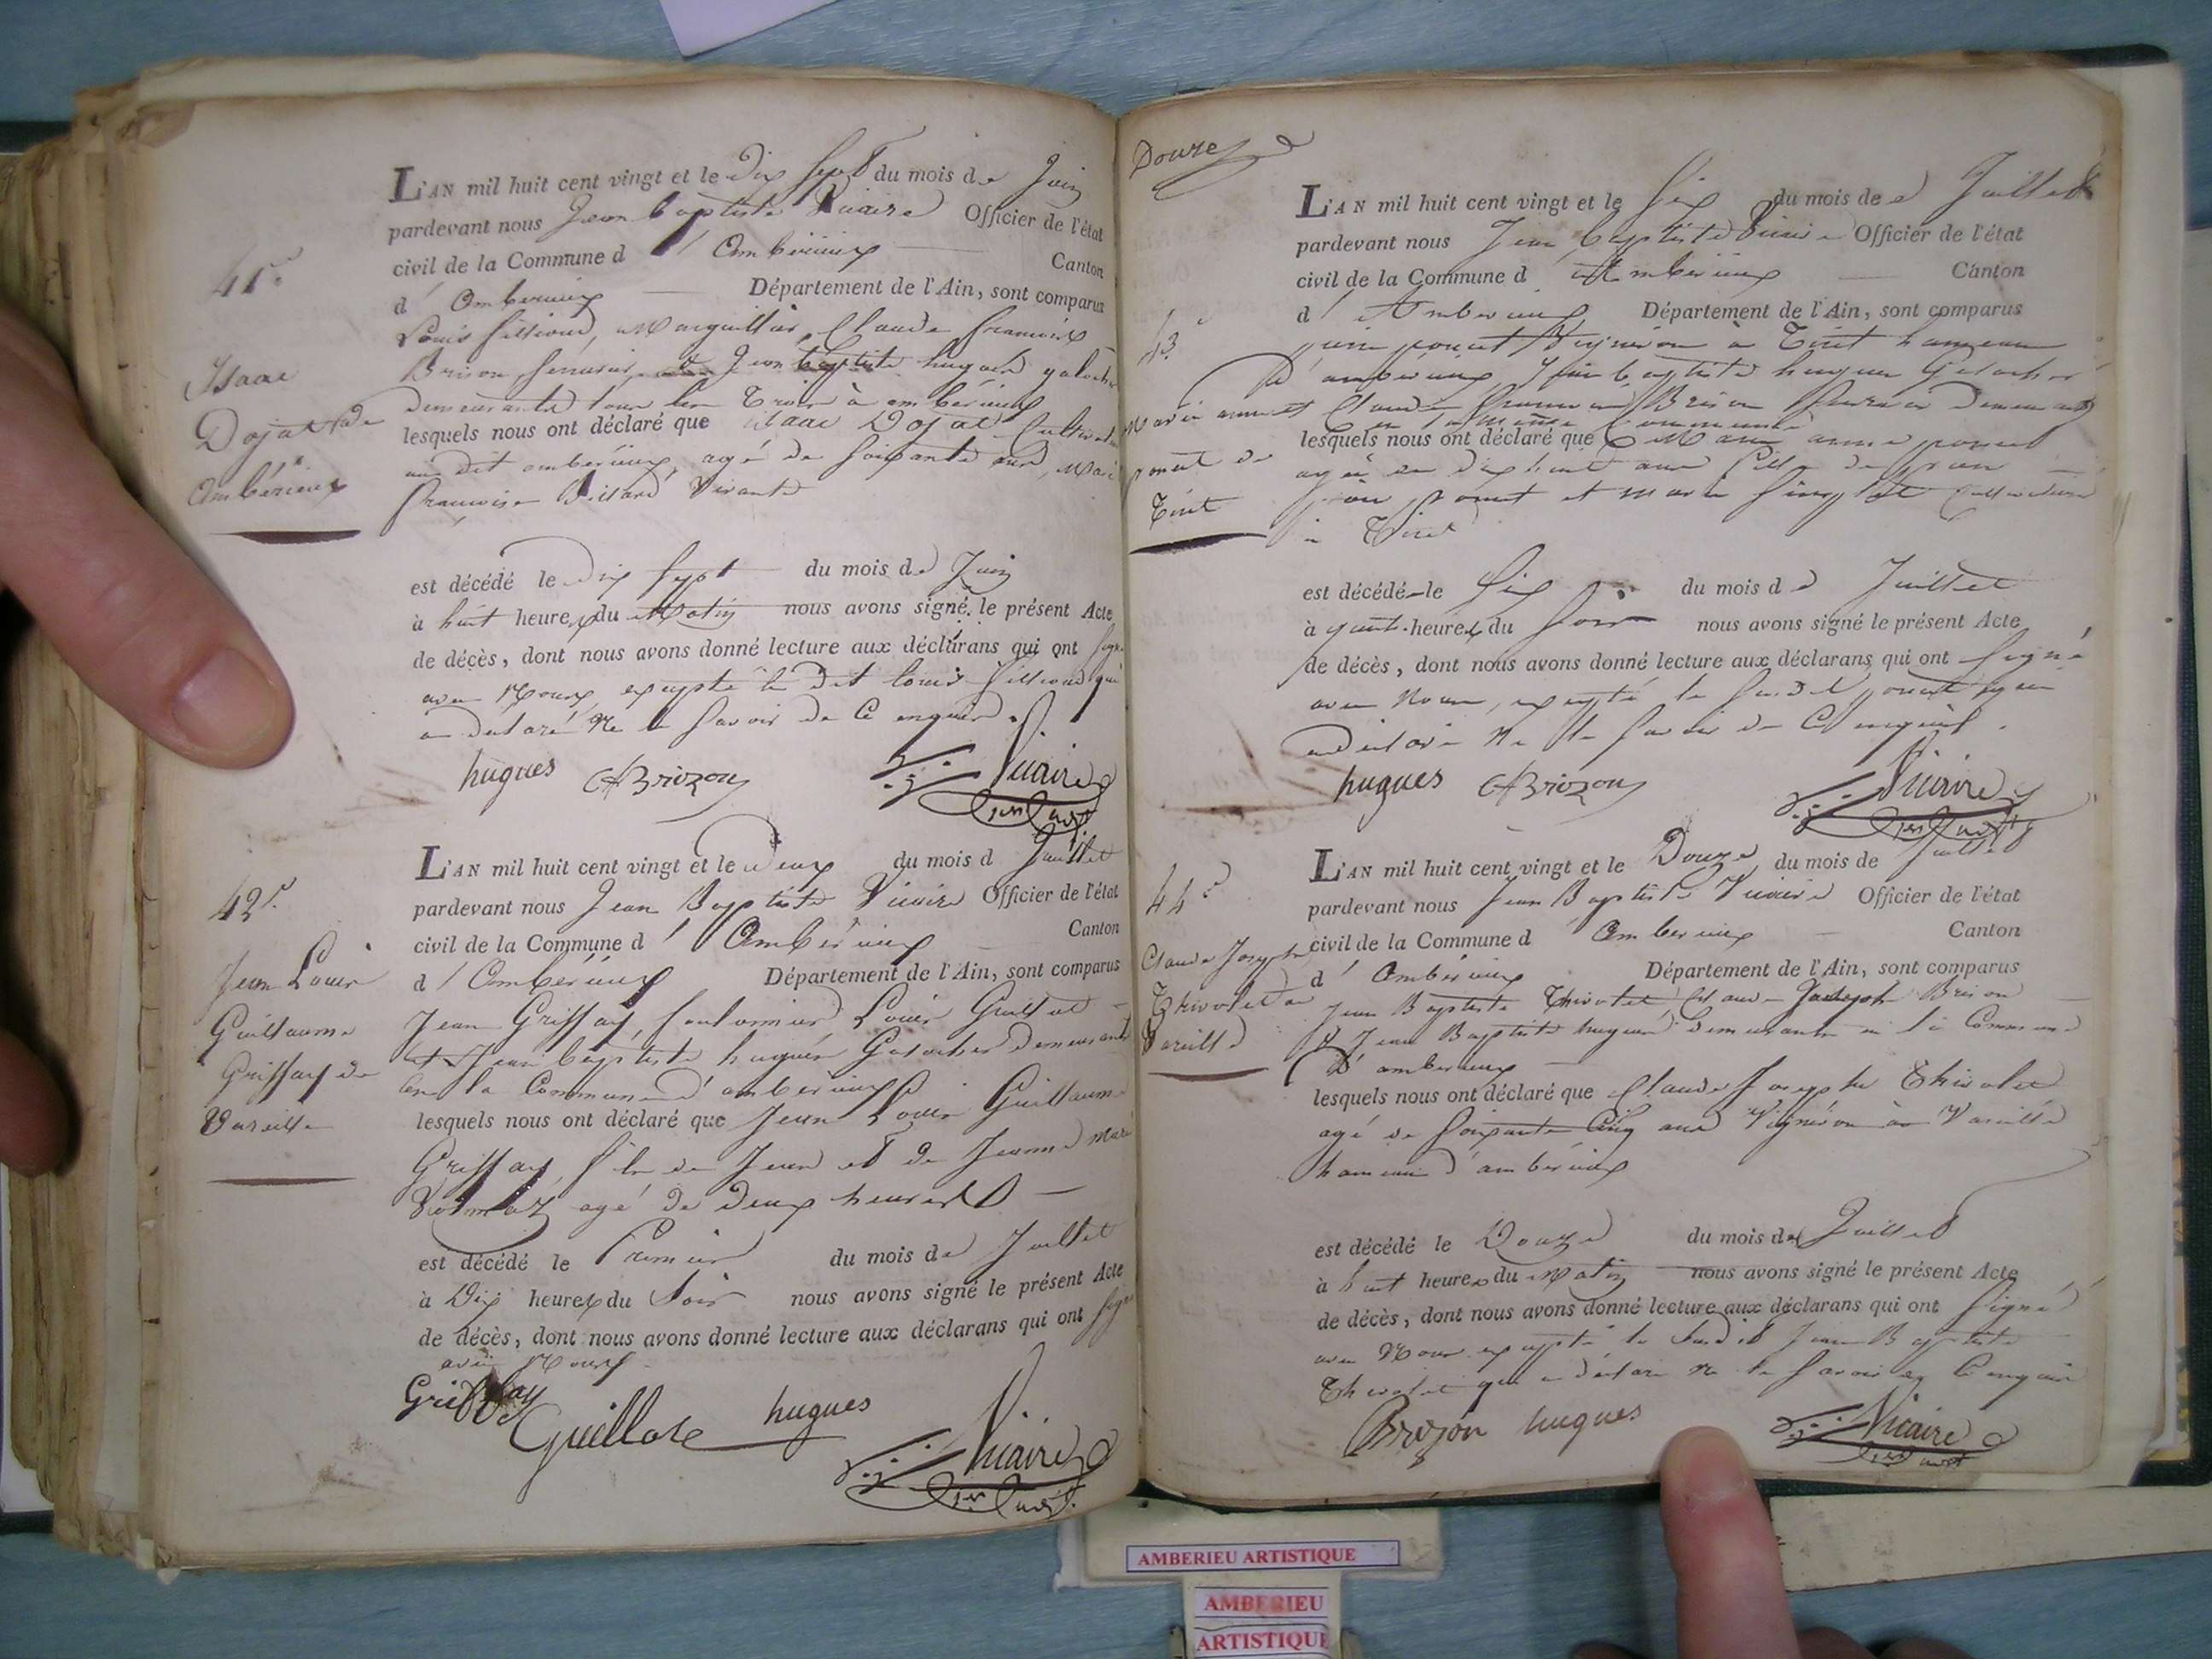 41e
Isaac
Dojat de
Ambérieux
L'AN mil huit cent vingt et le Dix Sept du mois de Juin
pardevant nous Jean baptiste Vicaire Officier de l'état
civil de la Commune d' Ambérieux Canton
d' Amberieux Département de l'Ain, sont comparus
Louis fillioud, Marguillier, Claude francois
Brison, Serrurier, et Jean baptiste hugues galocher
demeurants tous les Trois à ambérieux
lesquels nous ont déclaré que Isaac Dojat Cultivateur
au dit ambérieux, agé de Soixante ans, Mari
francoise Vivante
est décédé le dix Sept du mois de Juin
à huit heures du Matin nous avons signé le présent Acte
de décès, dont nous avons donné lecture aux déclarans qui ont Signé
avec Nous, excepté le dit Louis fillioud qui
a déclaré Ne le Savoir de Ce enquis.
hugues CfBrizon Vicaire
42e.
Jean Louis
Guillaume
Griffay de
Vareille
L'AN mil huit cent vingt et le deux du mois d Juillet
pardevant nous Jean Baptiste Vicaire Officier de l'état
civil de la Commune d' Ambérieux Canton
d' Ambérieux Département de l'Ain, sont comparus
Jean Griffay, Louis Guillot
et Jean baptiste hugues Galocher demeurants
en la Commune d'amberieux
lesquels nous ont déclaré que Jean Louis Guillaume
Griffay, fils de Jean et de Jeanne Marie
agé de Deux heures
est décédé le Premier du mois de Juillet
à Dix heures du Soir nous avons signé le présent Acte
de décès, dont nous avons donné lecture aux déclarans qui ont Signé
avec Nous
Griffay Guillot hugues Vicaire
Douze
43e
Marie anne
poncet de
Tiret
L'AN mil huit cent vingt et le Six du mois de Juillet
pardevant nous Jean baptiste Vicaire Officier de l'état
civil de la Commune d' Ambérieux Canton
d' Amberieux Département de l'Ain, sont comparus
poncet Vigneron à Tiret hameau
D'ambérieux, Jean baptiste hugues Galocher
et Claude francois Brison Serrurier Demeurants
en la même Commune
lesquels nous ont déclaré que Marie anne poncet
agée de Dix huit ans fille de
poncet et Marie Cultivateurs
à Tiret
est décédé le Six du mois de Juillet
à quatre heures du Soir nous avons signé le présent Acte
de décès, dont nous avons donné lecture aux déclarans qui ont Signé
avec Nous, excepté le Susdit poncet qui
a déclaré Ne le Savoir de Ce enquis.
hugues CfBrizon Vicaire
44e
Claude Joseph
Thivolet de
Vareille
L'AN mil huit cent vingt et le Douze du mois de Juillet
pardevant nous Jean Baptiste Vicaire Officier de l'état
civil de la Commune d Ambérieux Canton
d' Ambérieux Département de l'Ain, sont comparus
Jean Baptiste Thivolet, Claude Joseph Brison
et Jean Baptiste hugues demeurants en la Commune
D'amberieux
lesquels nous ont déclaré que Claude Joseph Thivolet
agé de Soixante Cinq ans Vigneron à Vareille
hameau d'ambérieux
est décédé le Douze du mois de Juillet
à huit heures du Matin nous avons signé le présent Acte
de décès, dont nous avons donné lecture aux déclarans qui ont Signé
avec Nous excepté le Susdit Jean Baptiste
Thivolet qui a déclaré ne le Savoir de Ce enquis
Brizon hugues Vicaire
AMBERIEU ARTISTIQUE
AMBERIEU
ARTISTIQUE